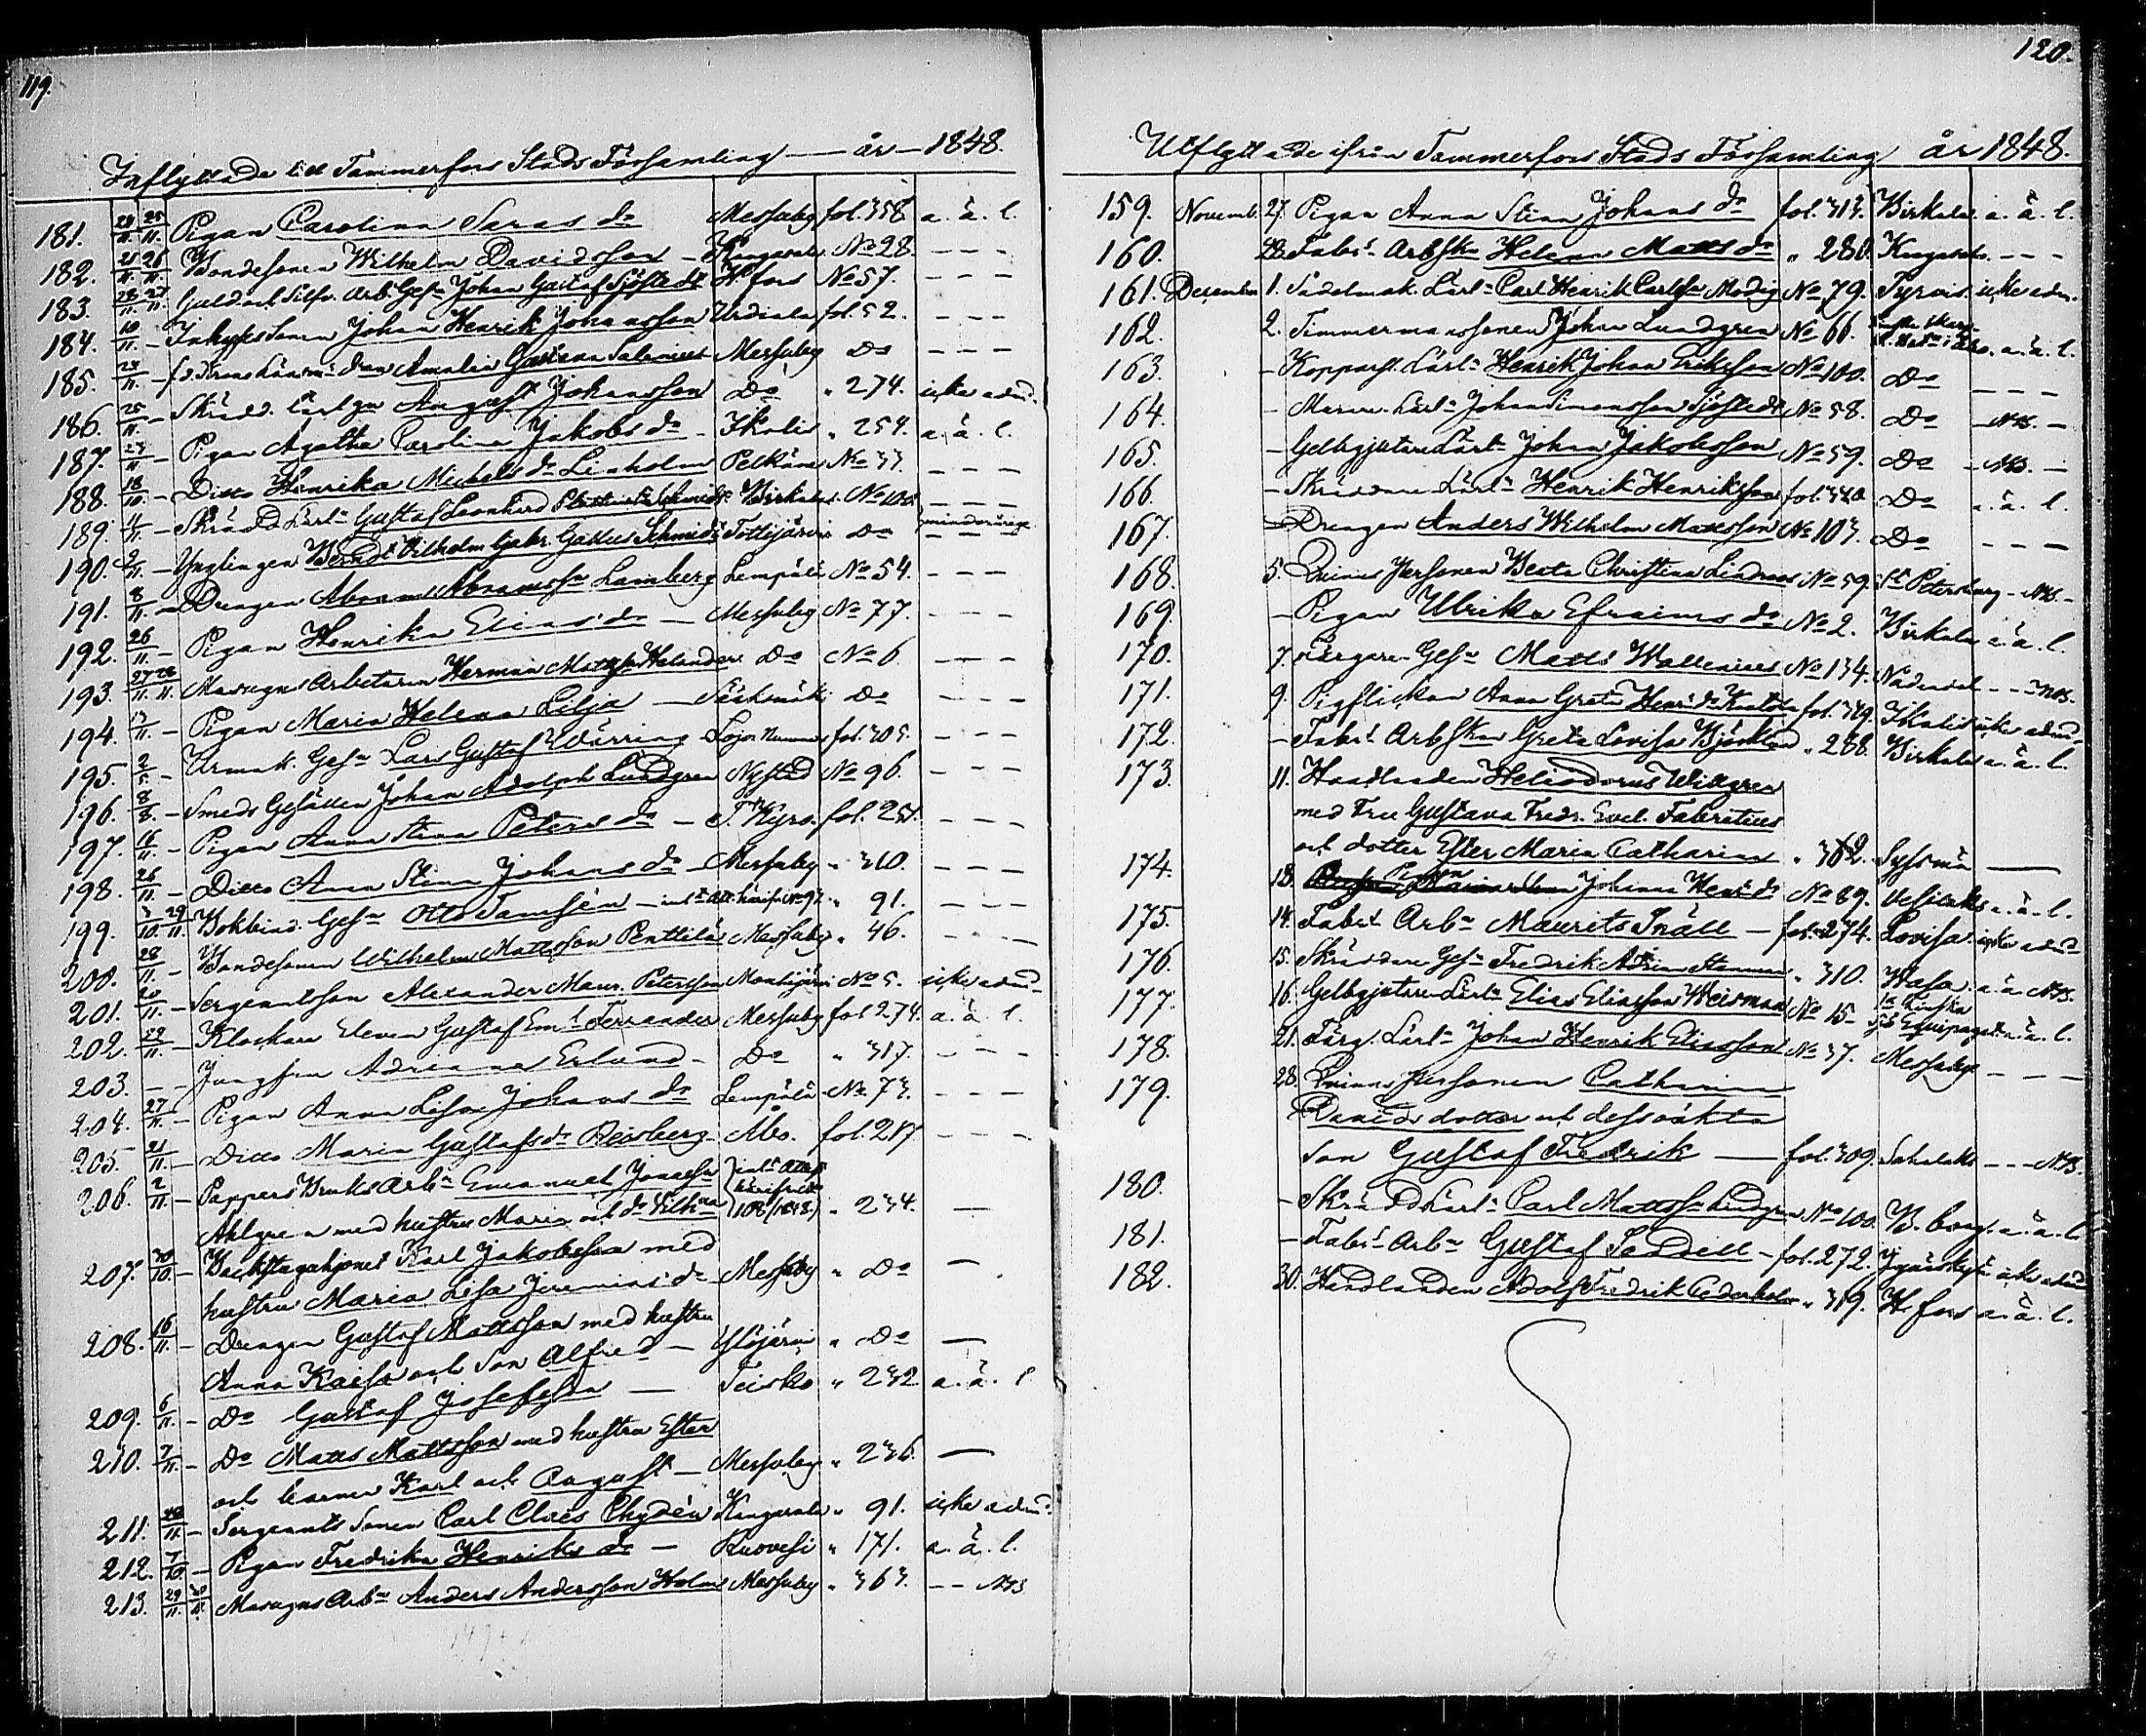 119.
Inflyttade till Tammerfors Stads Församling — år — 1848.
181. 24/11. 25/11. Pigan Carolina Saras dr Messuby fol. 358. a. ä. l.
182. 25/11. 26/11. Bondesonen Wilhelm Davidsson — Kangasala No 28. – – –
183. 23/11. 27/11. Guld och Silfv. Arb. Gesn Johan Gustaf Sjöstedt H.fors No 57. – – –
184. 10/11. – Inhyses Sonen Johan Henrik Johansson Urdiala fol. 52. – – –
185. 24/11. – f.d. Krono Länsm. dr Amalia Gustava Salenius Messuby Do – – –
186. 25/11. – Skrädd. Lärlgn August Johansson Do " 274. icke adm.
187. 23/11. – Pigan Agatha Carolina Jakobs dr – Ikalis " 254. a. ä. l.
188. 18/10. – Ditto Henrika Michels dr Linholm Pelkäne No 33. – – –
189. 4/11. – Skrädd. Lärln Gustaf Leonhard Schmidt Birkala No 105. – – –
190. 2/11. – Ynglingen Berndt Vilhelm Gabr. Gallus Schmidt Tottijärvi Do minderårige
191. 8/11. – Drengen Abram Abramssn Lamberg Lempälä No 54. – – –
192. 26/11. – Pigan Henrika Elias dr — Messuby No 77. – – –
193. 27/11. 28/11. Masugns Arbetaren Herman Mattssn Helander Do No 6. – – –
194. 13/11. – Pigan Maria Helena Lilja — Sääksmäki Do – – –
195. 2/5. – Urmak. Gesn Lars Gustaf Wärring – Lojo Nummi fol. 305. – – –
196. 8/8. – Smeds Gesällen Johan Adolph Lundgren Nystad No 96. – – –
197. 16/11. – Pigan Anna Stina Peters dr — T. Kyro. fol. 251. – – –
198. 26/11. – Ditto Anna Stina Johans dr — Messuby " 310. – – –
199. 3/10. 29/11. Bokbind. Gesn Otto Tamsén — inlt Att. härifr. No 92 " 91. – – –
200. 28/11. – Bondesonen Wilhelm Mattsson Penttilä Messuby " 46. – – –
201. 20/11. – Sergeantsson Alexander Maur. Petersson Mouhijärvi No 5. icke adm.
202. 22/11. – Klockare Eleven Gustaf Eml Ferrander Messuby fol. 274. a. ä. l.
203. – – Jungfru Adriana Erlund – Do " 317. – – –
204. 27/11. – Pigan Anna Lisa Johans dr Lempälä No 73. – – –
205. 21/11. – Ditto Maria Gustafs dr Reisberg – Åbo. fol. 217. – – –
206. 2/11. – Pappers Bruks Arbn Emanuel Jonassn inlt Attest härifrån
Ahlgren med hustru Maria och dr Vilhna 108/1848.) " 234. —
207. 30/10. – Backstuguhjonet Karl Jakobsson med
hustru Maria Lisa Jeremias dr Messuby " Do —
208. 16/11. – Drengen Gustaf Mattsson med hustru
Anna Kaisa och Son Alfred — Ylöjärvi " Do —
209. 6/11. – Do Gustaf Josefsson — Teisko " 232. a. ä. l.
210. 7/11. – Do Matts Mattsson med hustru Ester
och barnen Karl och August — Messuby " 236. —
211. 20/11. – Sergeants Sonen Carl Claës Chydén Kangasala " 91. icke adm.
212. 7/10. – Pigan Fredrika Henriks dr — Kuovesi " 171. a. ä. l.
213. 29/11. 30/11. Masugns Arbn Anders Andersson Holm Messuby " 363. – – NB
120.
Utflyttade ifrån Tammerfors Stads Församling år 1848.
159. Novemb. 27. Pigan Anna Stina Johans dr fol. 313. Birkala a. ä. l.
160. 28. Fabrs Arbskn Helena Matts dr " 280. Kangasala – – –
161. December 1. Sadelmak. Lärln Carl Henrik Carlssn Modig No 79. Tyrvis. icke adm.
162. 2. Timmermanssonen Johan Lundgren No 66. Finska Skarp. Åbo. a. ä. l.
163. – Kopparsl. Lärln Henrik Johan Eriksson No 100. Do – – –
164. – Murare Lärln Johan Simonsson Sjöstedt No 58. Do – NB. –
165. – Gelbgjutare Lärln Johan Jakobsson No 59. Do – NB. –
166. – Skräddare Lärln Henrik Henriksson fol. 340. Do a. ä. l.
167. – Drengen Anders Wilhelm Mattsson No 103. Do – – –
168. 5. Qvinns Personen Beata Christina Lindroos No 59. St Petersburg – NB. –
169. – Pigan Ulrika Efraims dr No 2. Birkala a. ä. l.
170. 7. Färgare Gesn Matts Wallenius No 134. Nådendal – – NB.
171. 9. Pigflickan Anna Greta Henr. dr fol. 349. Ikalis icke adm.
172. – Fabrs Arbskan Greta Lovisa Björklund " 288. Birkala a. ä. l.
173. 11. Handlanden Heliodorus Willgren
med Fru Gustava Fredr. Evel. Fabritius
och dotter Ester Maria Catharina " 362. Sysmä —
174. 13. Pigan Johanna Henr. dr No 89. Vesilaks a. ä. l.
175. 14. Fabrs Arbn Maurits Snäll — fol. 274. Lovisa. icke adm.
176. 15. Skräddare Gesn Fredrik Adrian Stenman " 310. Wasa a. ä. NB.
177. 16. Gelbgjutare Lärln Elias Eliasson Weisman No 15 – 1a Finska Sjö Equipaget a. ä. l.
178. 21. Färg. Lärln Johan Henrik Eliasson No 37. Messuby – – –
179. 28. Qvinns Personen Catharina
Davids dotter och dess oäkta
son Gustaf Fredrik — fol. 309. Sahalaks – – NB.
180. – Skrädd. Lärln Carl Mattssn Lindgren No 100. B.borg. a. ä. l.
181. – Fabrs Arbn Gustaf Sandell – fol. 272. Jyväskylä icke adm.
182. 30. Handlanden Adolf Fredrik Cederholm " 319. H.fors a. ä. l.